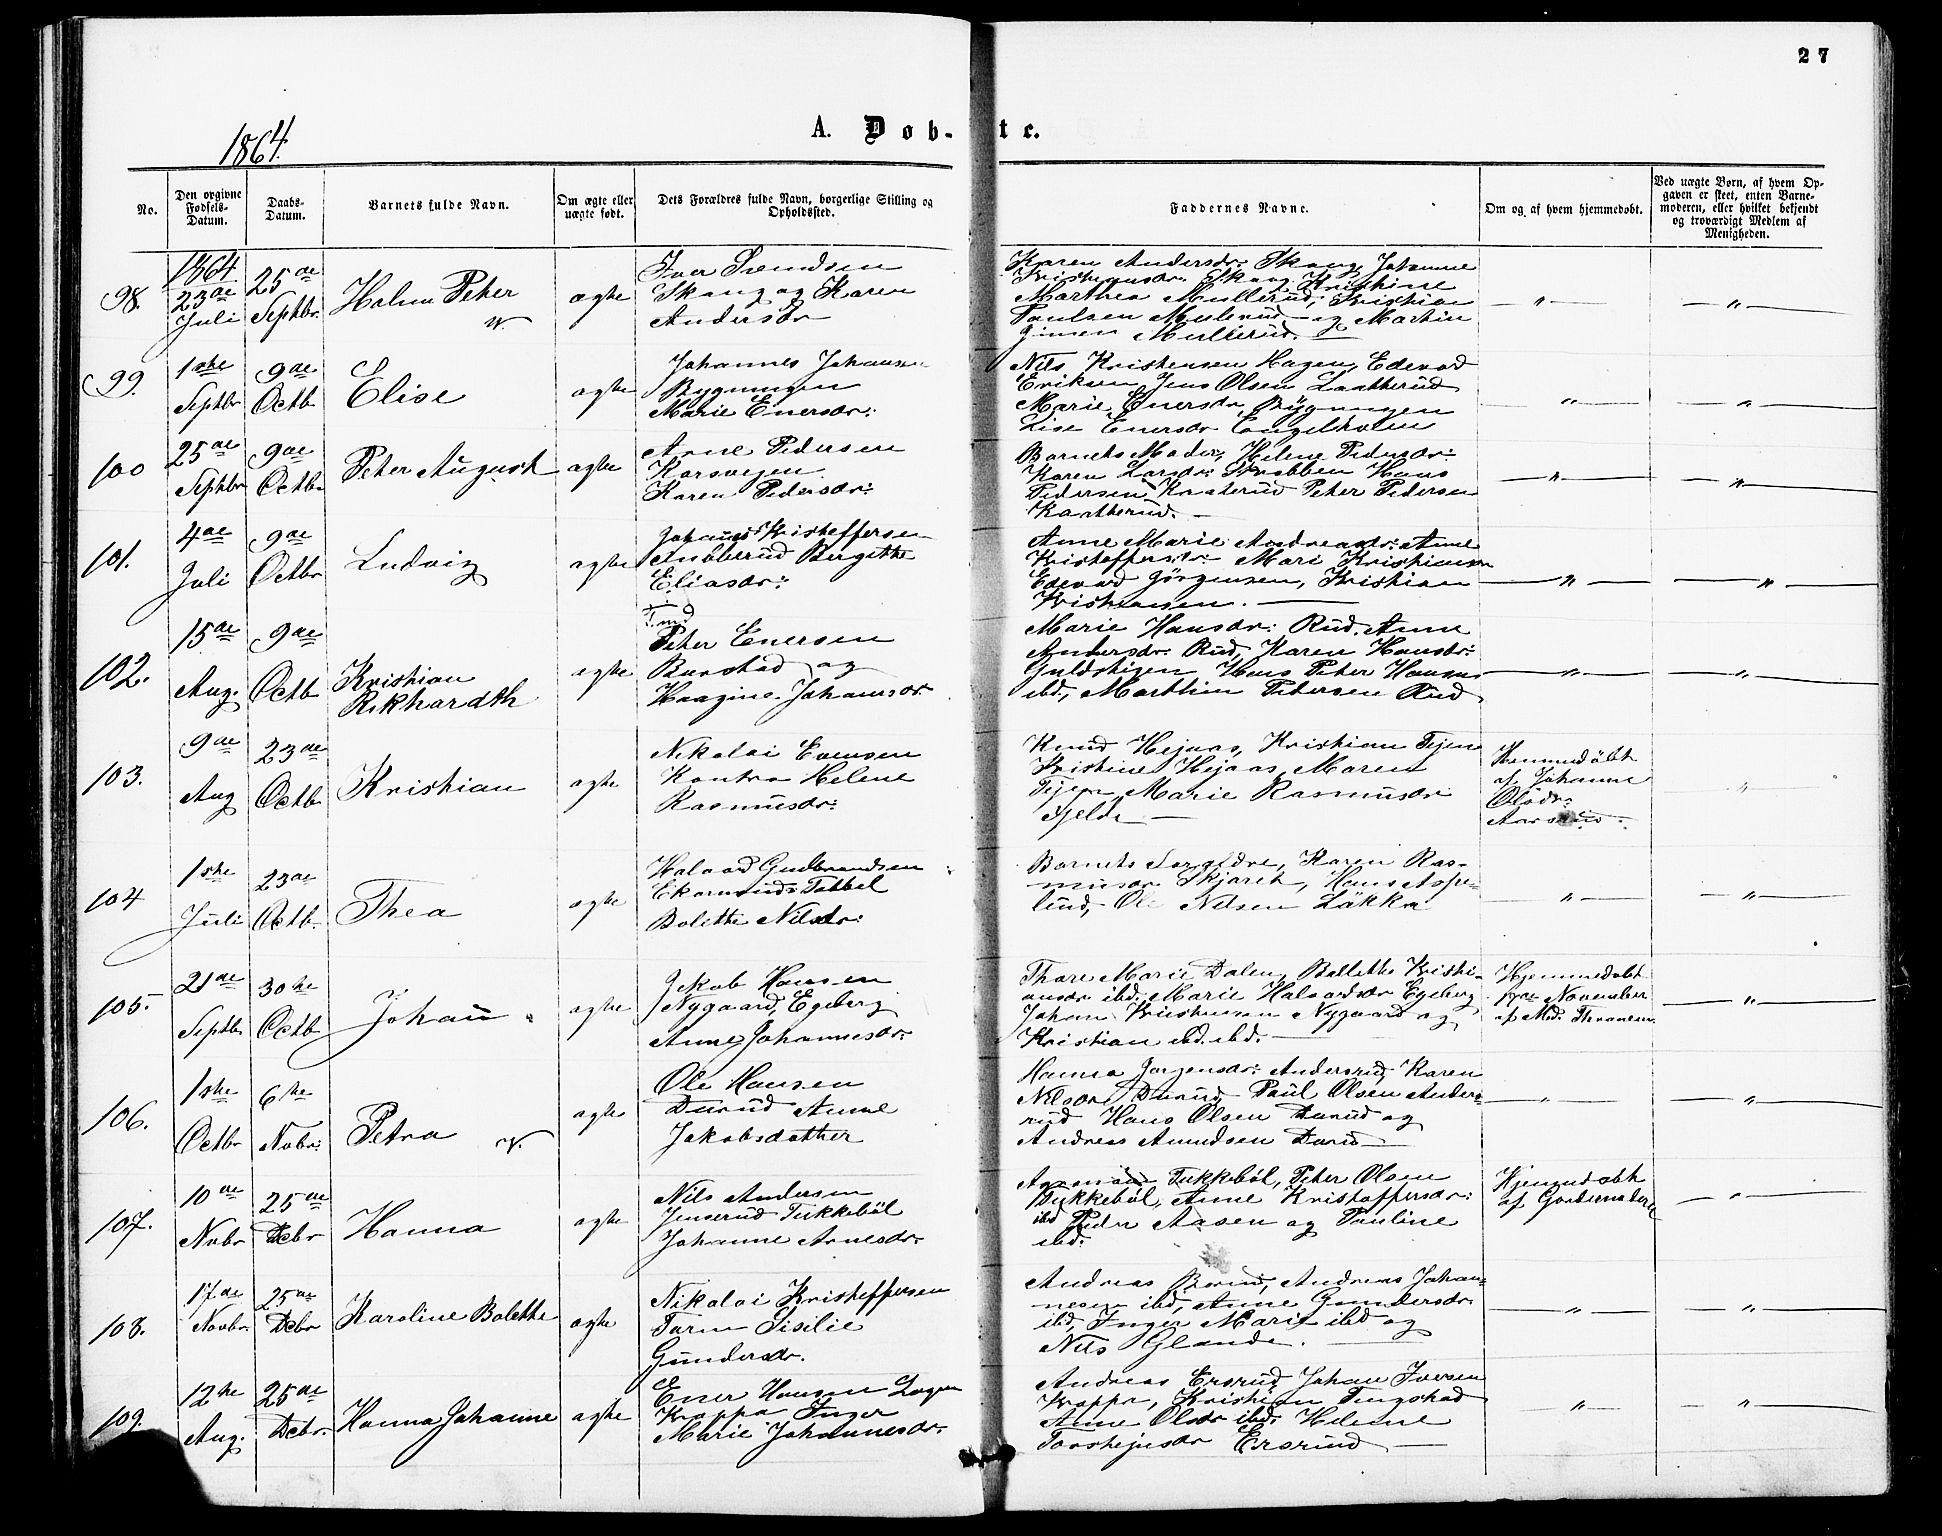 27
1864.
A. Døb- te.
No.
Den opgivne Fødsels-Datum.
Daabs-Datum.
Barnets fulde Navn.
Om ægte eller uægte født.
Dets Forældres fulde Navn, borgerlige Stilling og Opholdssted.
Faddernes Navne.
Om og af hvem hjemmedøbt.
Ved uægte Børn, af hvem Opgaven er skeet, enten Barnemoderen, eller hvilket bekjendt og troværdigt Medlem af Menigheden.
98.
1864
23de
Juli
25de
Septbr.
Halvor Peter
v.
ægte
Iver Svendsen
Skaug og Karen
Andersdr
Karen Andersdr. Skaug, Johanne
Kristiansdr. Skaug, Kristine
Marthea Mullerud, Kristian
Paulsen Mullerud og Martin
Mullerud.
— " —
— " —
99.
1ste
Septbr
9de
Octb
Elise
ægte
Johannes Johansen
Bygningen
Marie Enersdr:
Nils Kristensen Hagen, Edevard
Eriksen, Jens Olsen Laatterud
Marie Enersdr, Bygningen
Lise Enersdr Engelholen
— " —
— " —
100
25de
Septbr
9de
Octb.
Peter August
ægte
Arne Pedersen
Korsvegen
Karen Pedersdr:
Barnets Moder, Helene Pedersdr:
Karen Larsdr: Hans
Pedersen Peter Pedersen
Kaatterud. —
— " —
— " —
101.
4de
Juli
9de
Octbr
Ludvig
ægte
Johannes Kristoffersen
Aubberud Bergitte
Eliasdr:
Anne Marie Andreasdr: Anne
Kristoffersdr: Mari Kristiansen
Edevard Jörgensen, Kristian
Kristiansen. —
— " —
— " —
102.
15de
Aug.
9de
Octb
Kristian
Rikhardth
ægte
Peter Enersen
Burstad og
Haagine Johansdr
Marie Hansdr: Rud, Anne
Andersdr. Rud, Karen Hansdr:
Guldstigen Hans Peter Hansen
ibd, Marthin Pedersen Rud
— " —
— " —
103.
9de
Aug
23de
Octb.
Kristian
ægte
Nikolai Evensen
Kontra Helene
Rasmusdr:
Knud Hejaas, Kristian Tijen
Kristine Hejaas, Maren
Tijen, Marie Rasmusdr
Fjelde —
Hemmedöbt
af Johanne
Olsdr:
"
104
1ste
Juli
23de
Octb.
Thea
ægte
Halvord Gudbrandsen
Tabbel
Bolitte Nilsdr:
Barnets Forældre, Karen Ras-
musdr. Skjæret, Hans Aspe-
lund, Ole Nilsen Løkka
— " —
— " —
105.
21de
Septb.
30te
Octb
Johan
ægte
Jakob Hansen
Nygaard, Egeberg
Anne Johannesdr.
Thore Marie Dalen, Bollette Kristi-
ansdr. ibd, Marie Halvordsdr Egeberg
Johan Kristiansen Nygaard og
Kristian ibd. ibd. —
Hjemmedøbt
17de November
af Mad. Stevansen.
— " —
106.
1ste
Octbr
6te
Nobr.
Petra
v.
ægte
Ole Hansen
Durud Anne
Jakobsdatter
Hanna Jørgensdr: Andersrud, Karen
Nilsdr. Durud, Paul Olsen Anders-
rud Hans Olsen Durud og
Andreas Amundsen Durud —
— " —
— " —
107.
10de
Novbr
25de
Debr
Hanna
ægte
Nils Andersen
Jenserud Tukkebøl
Johanne Arnesdr.
Tukkebøl, Peter Olsen
Tukkebøl, Anne Kristoffersdr:
ibd Peder Aasen og Pauline
ibd.
Hjemmedøbt
af Gardemoderen
— " —
108.
17de
Novbr.
25de
Debr
Karoline Bolette
ægte
Nikolai Kristoffersen
Sisilie
Gundersdr.
Andreas Andreas Johan-
nesen ibd, Anne Gundersdr.
ibd, Inger Marie ibd og
Nils Glande. —
— " —
— " —
109.
12te
Aug.
25de
Debr.
Hanna Johanne
ægte
Ener Hansen
Krappa Inger
Marie Johannesdr.
Andreas Ersrud, Johan Iversen
Krappa, Kristian Tingstad
Anne Olsdr ibd. Helene
Torstejnsdr Ersrud —
— " —
— " —